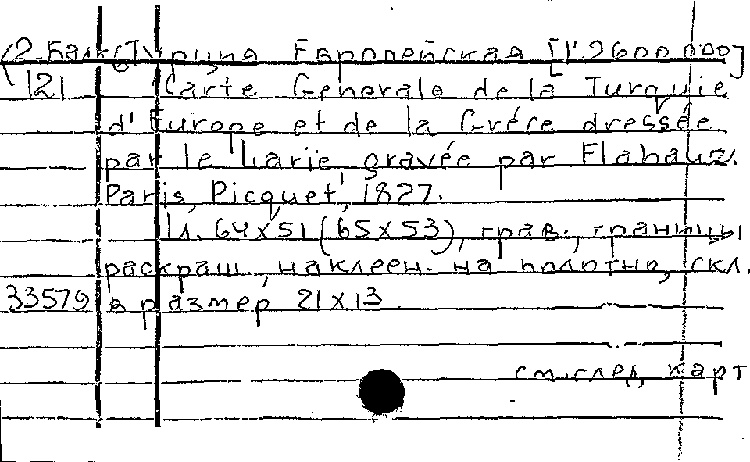 2-Балк Турция Европейская [1:2600000]
121 Carte Generale de la Turquie
d'Europe et de la Gréce dressée
par le Larie, gravée par Flahaut.
Paris, Picquet, 1827.
1л. 64x51 (65x53), грав., границы
раскраш., наклеен. на полотно, скл.
33579 в размер 21x13.
см. след. карт